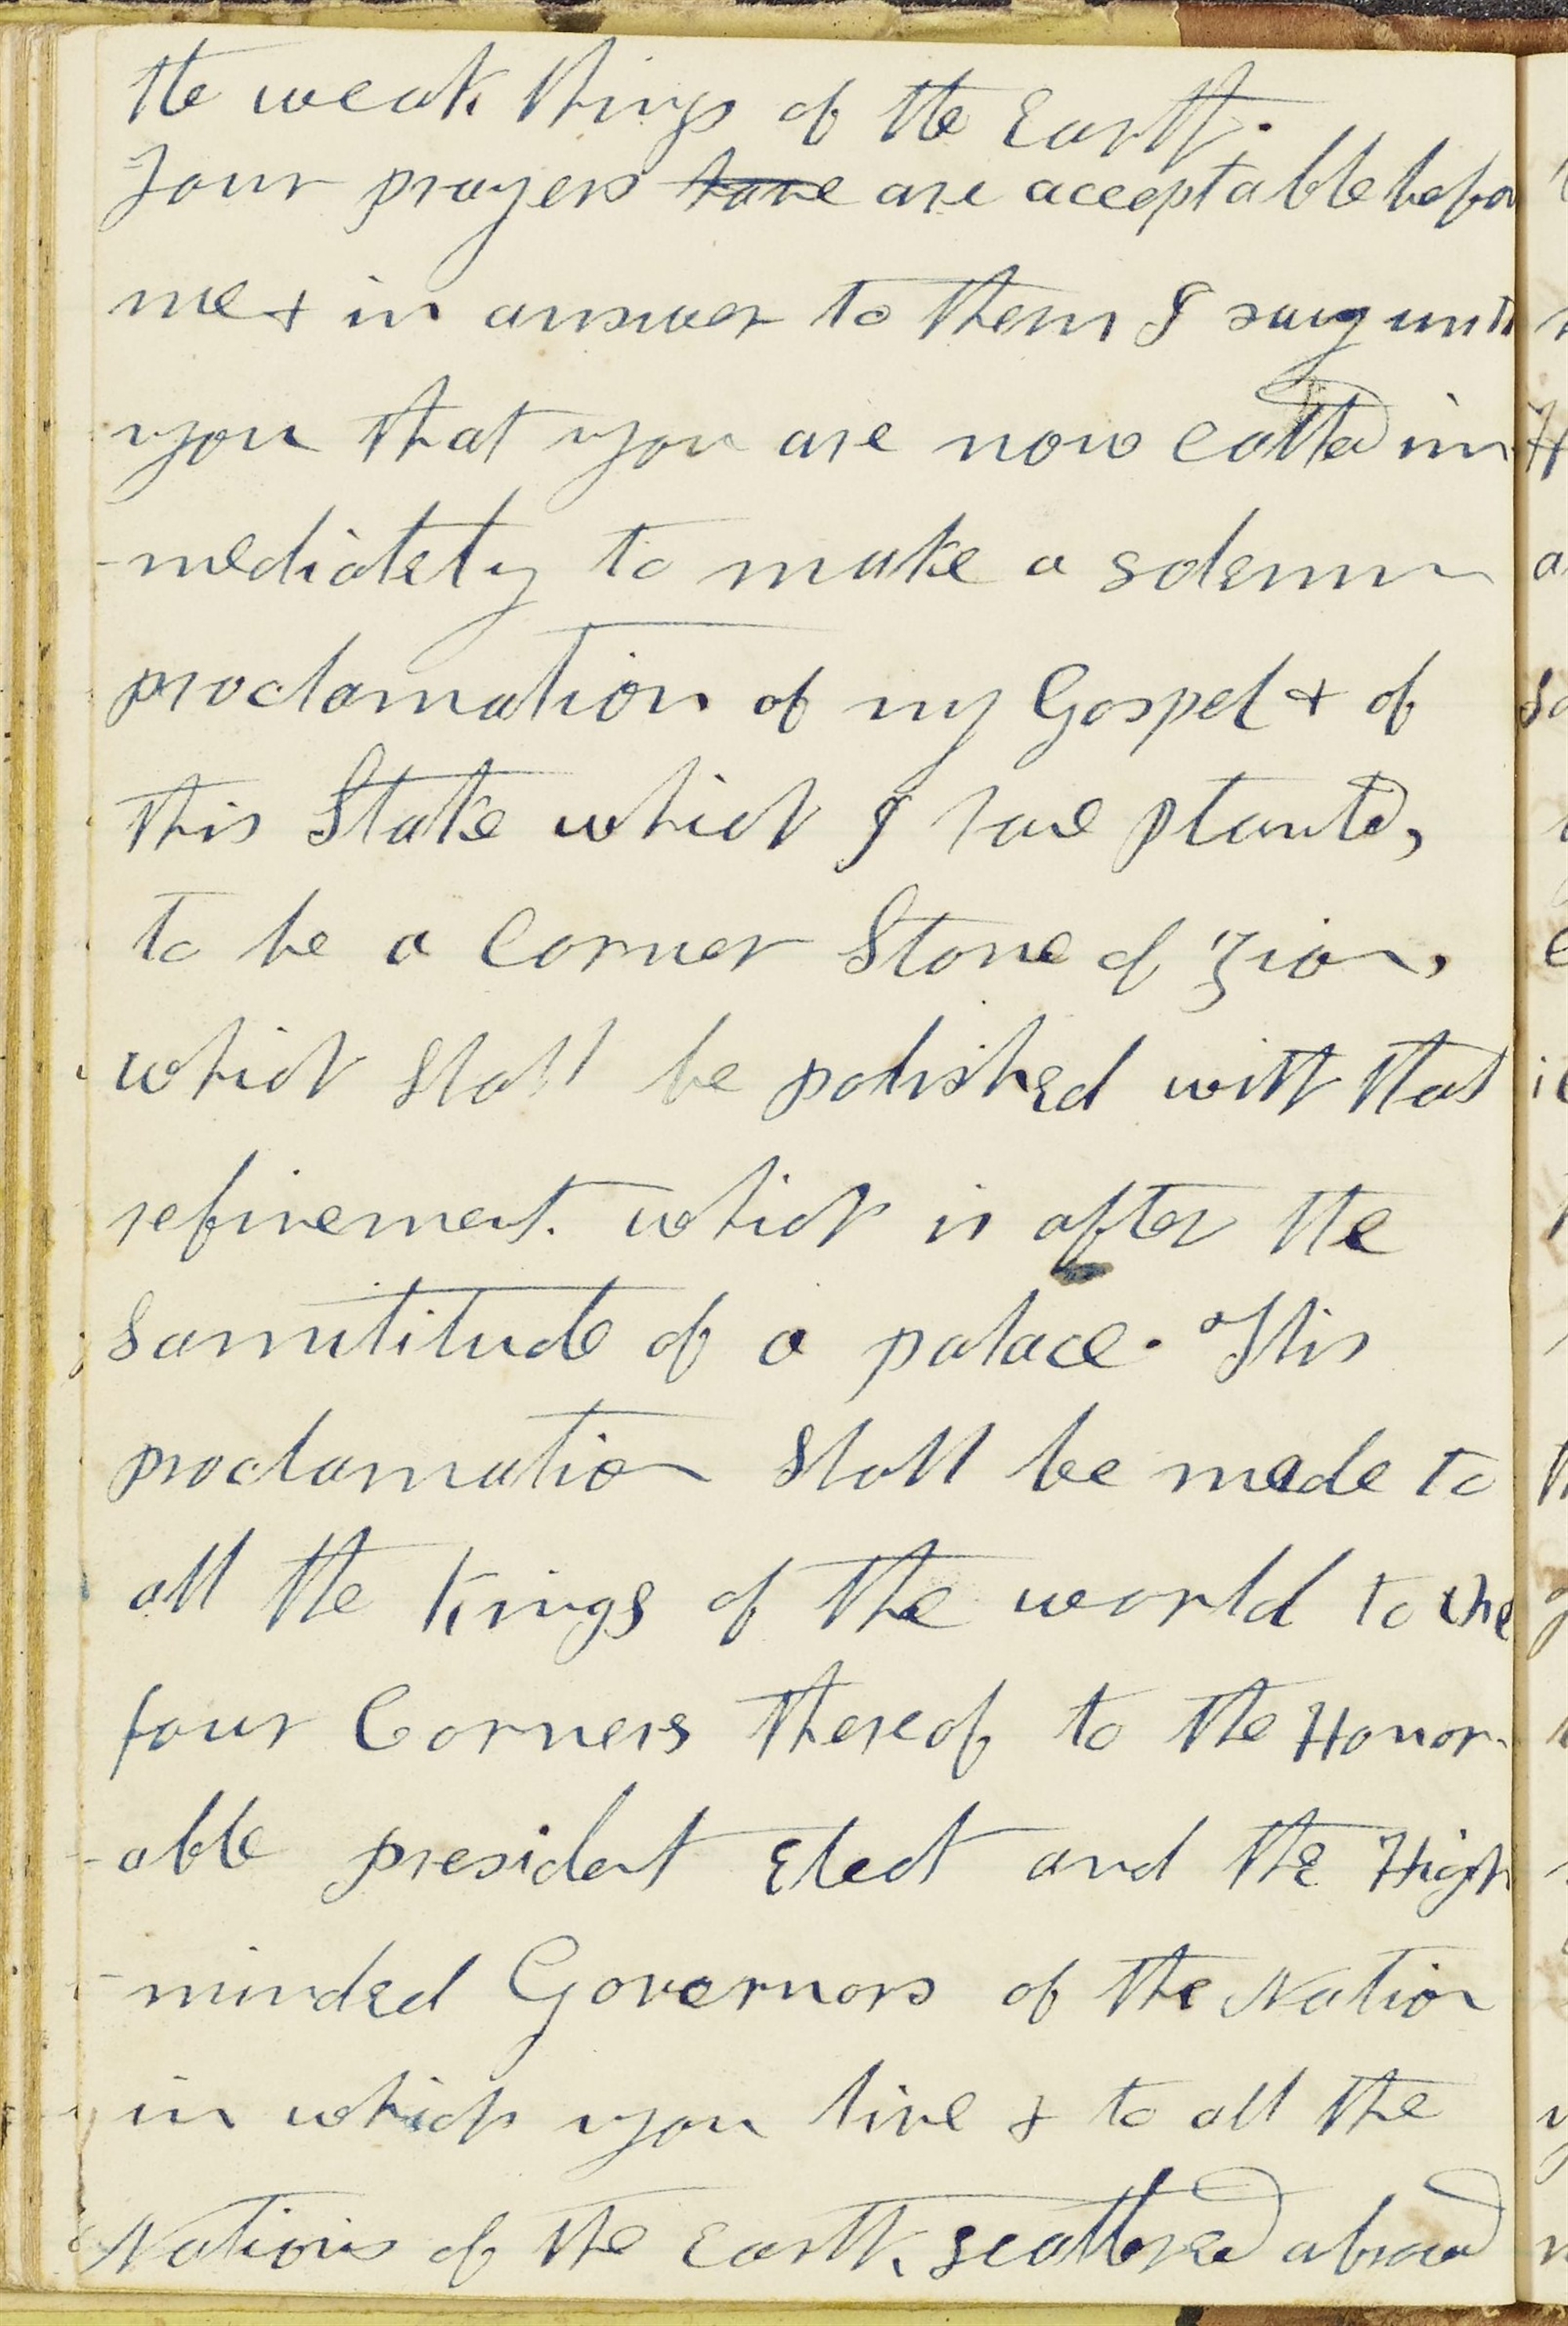 the weak things of the Earth.
Your prayers have are acceptable befor
me & in answer to them I say unto
you that you are now called im
-mediately to make a solemn
proclamation of my Gospel & of
this Stake which I have planted,
to be a Corner Stone of Zion,
which shall be polished with that
refinement. which is after the
samilitude of a palace. This
proclamation shall be made to
all the Kings of the world to the
four Corners thereof to the Honor-
-able president Elect and the High
-minded Governors of the Nation
in which you live & to all the
Nations of the Earth, scattered abroad